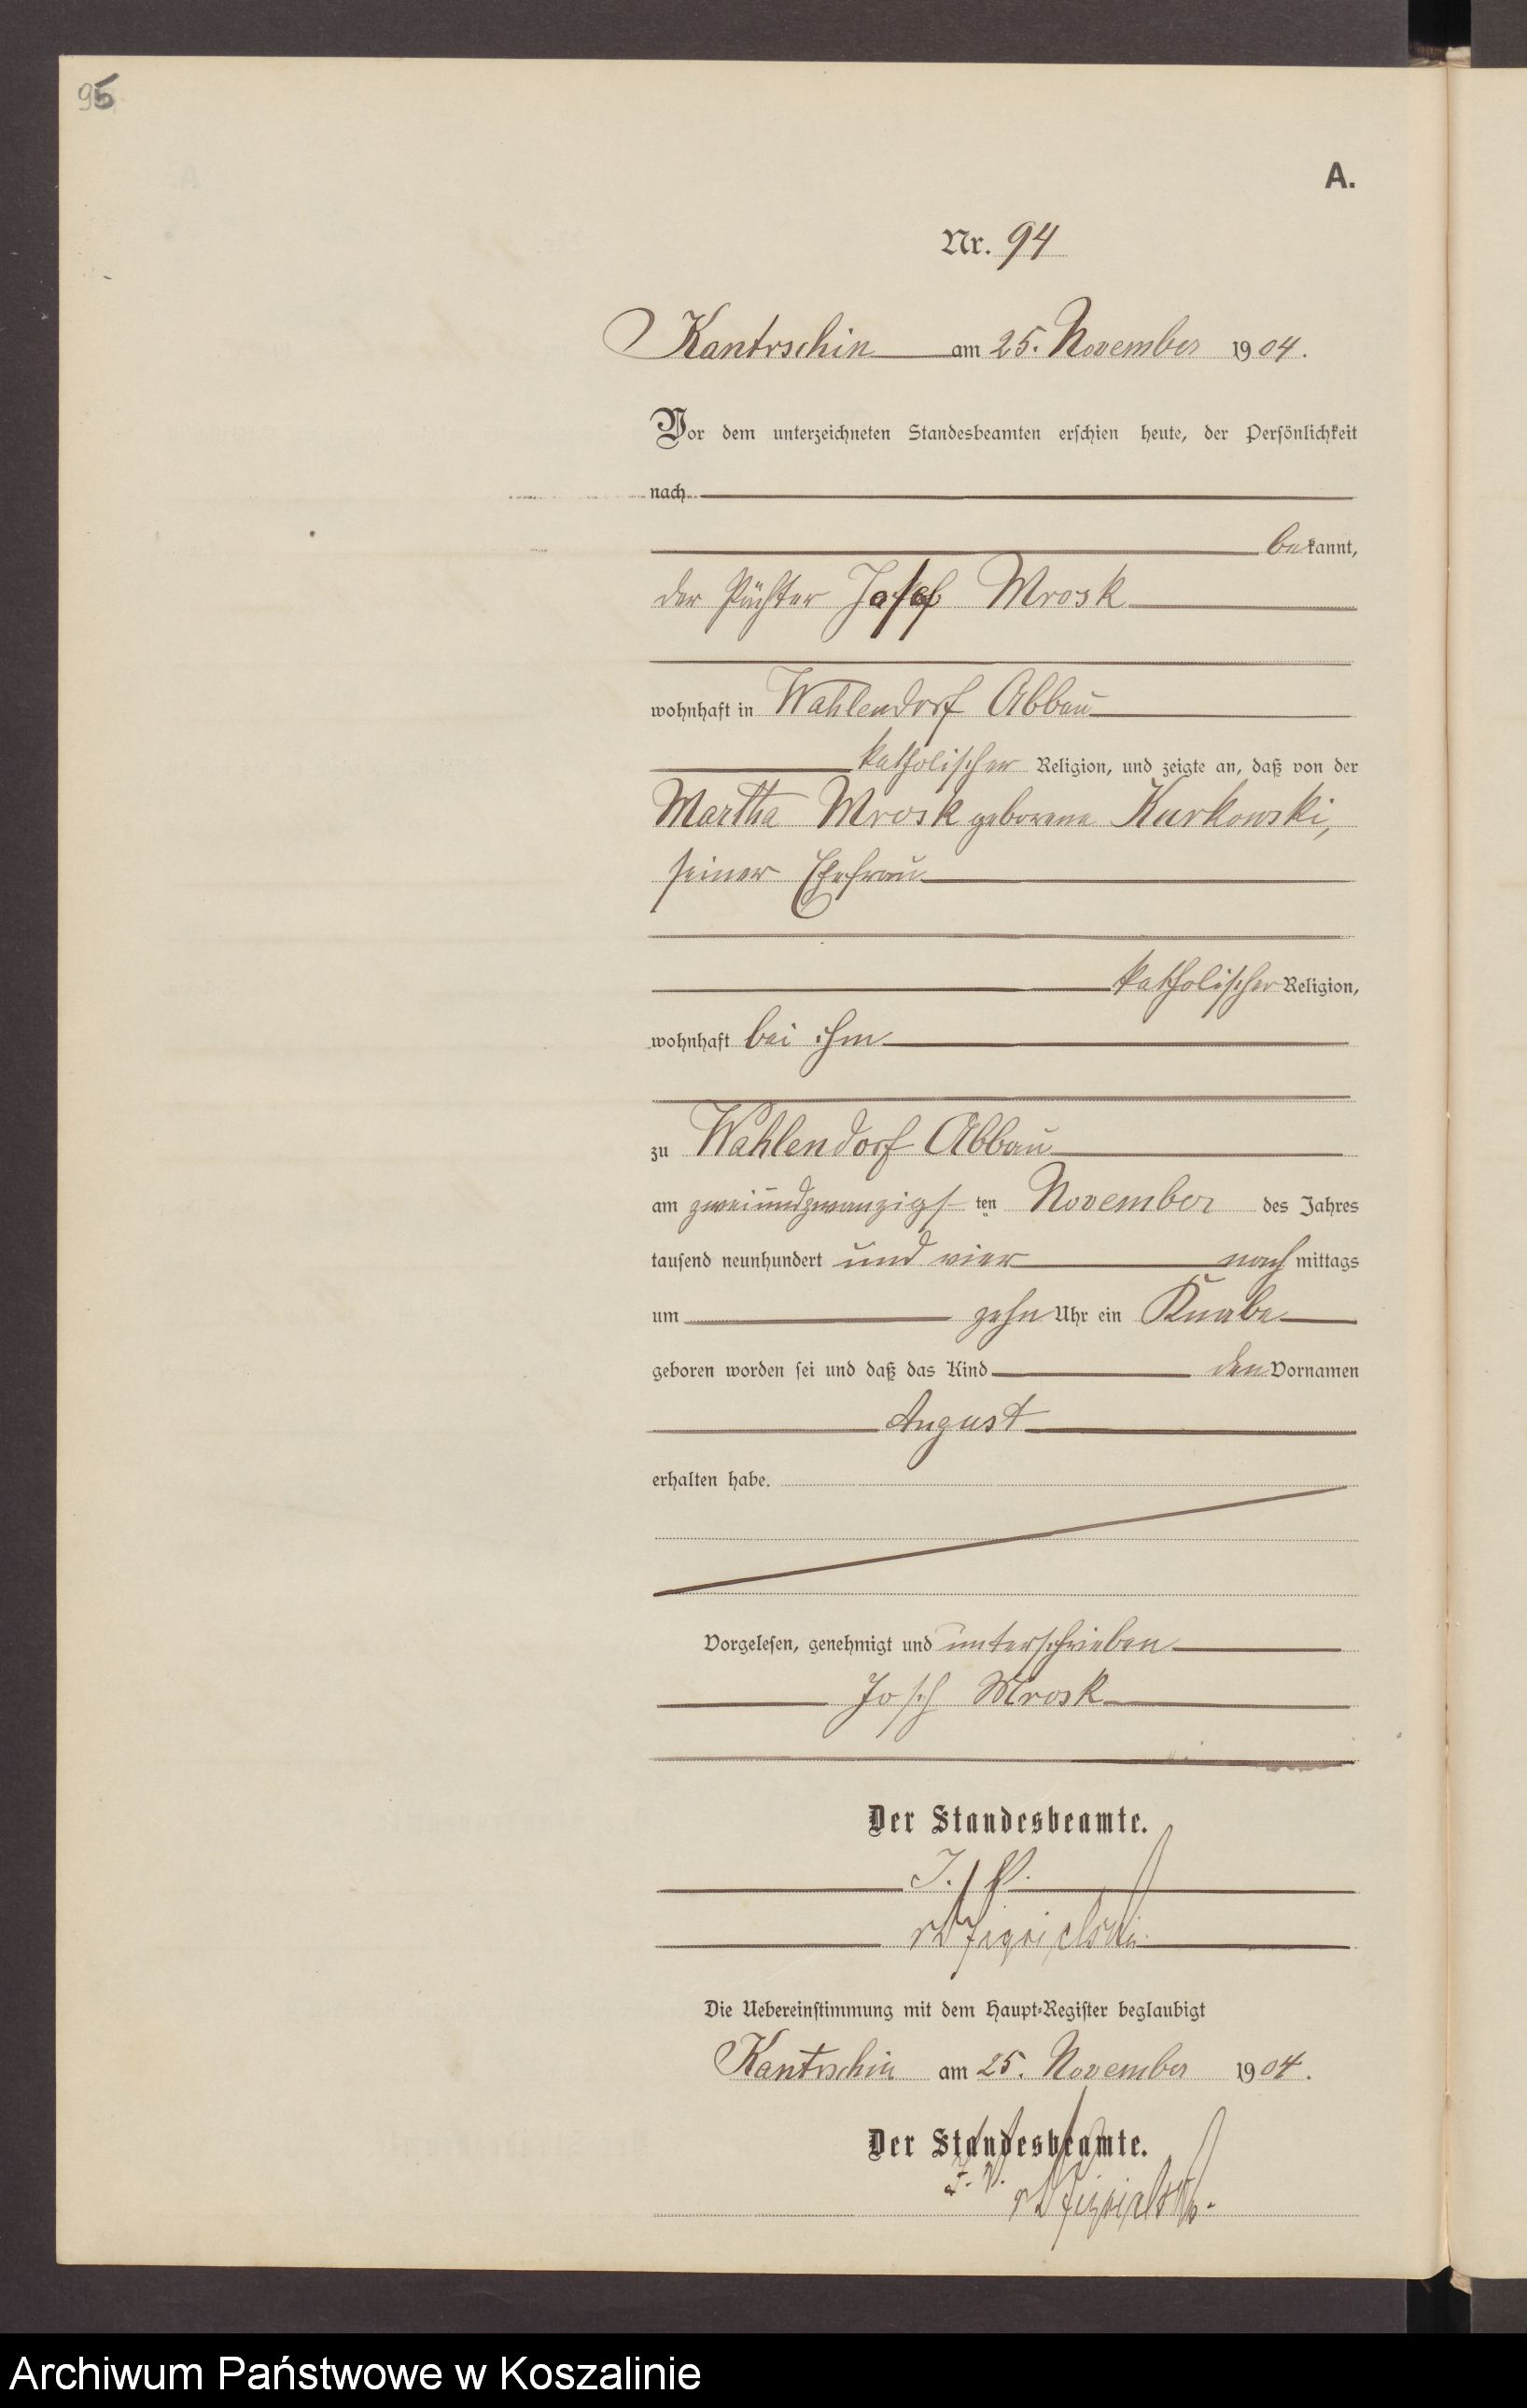 95
A.
Nr. 94
Kantrschin am 25. November 1904.
Vor dem unterzeichneten Standesbeamten erschien heute, der Persönlichkeit
nach
bekannt,
der Pächter Josef Mrosk
wohnhaft in Wahlendorf Abbau
katholischer Religion, und zeigte an, daß von der
Martha Mrosk geborene Kurkowski,
seiner Ehefrau
katholischer Religion,
wohnhaft bei ihm
zu Wahlendorf Abbau
am zweiundzwanzigsten November des Jahres
tausend neunhundert und vier nachmittags
um zehn Uhr ein Knabe
geboren worden sei und daß das Kind den Vornamen
August
erhalten habe.
Vorgelesen, genehmigt und unterschrieben
Josef Mrosk
Der Standesbeamte.
J. V.
Die Uebereinstimmung mit dem Haupt-Register beglaubigt
Kantrschin am 25. November 1904.
Der Standesbeamte.
J. V.
Archiwum Państwowe w Koszalinie